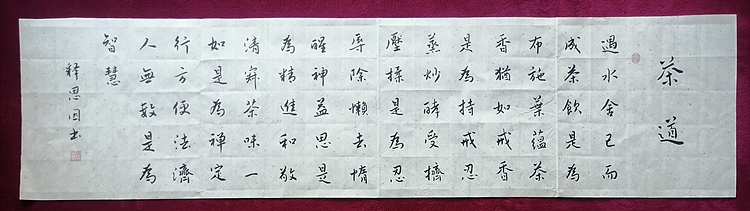 茶道
遇水舍己而
成茶飲是為
布施葉蘊茶
香猶如戒香
是為持戒忍
蒸炒酵受擠
壓揉是為忍
辱除懶去惰
醒神益思是
為精進和敬
清寂茶味一
如是為禪定
行方便法濟
人無數是為
智慧
释思因书